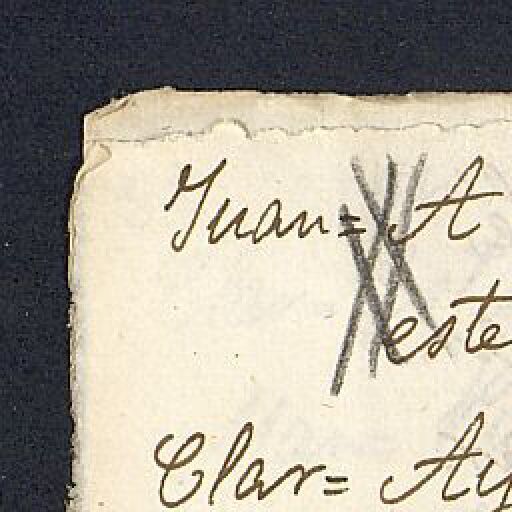 Juan= A
este
Clar= Ay